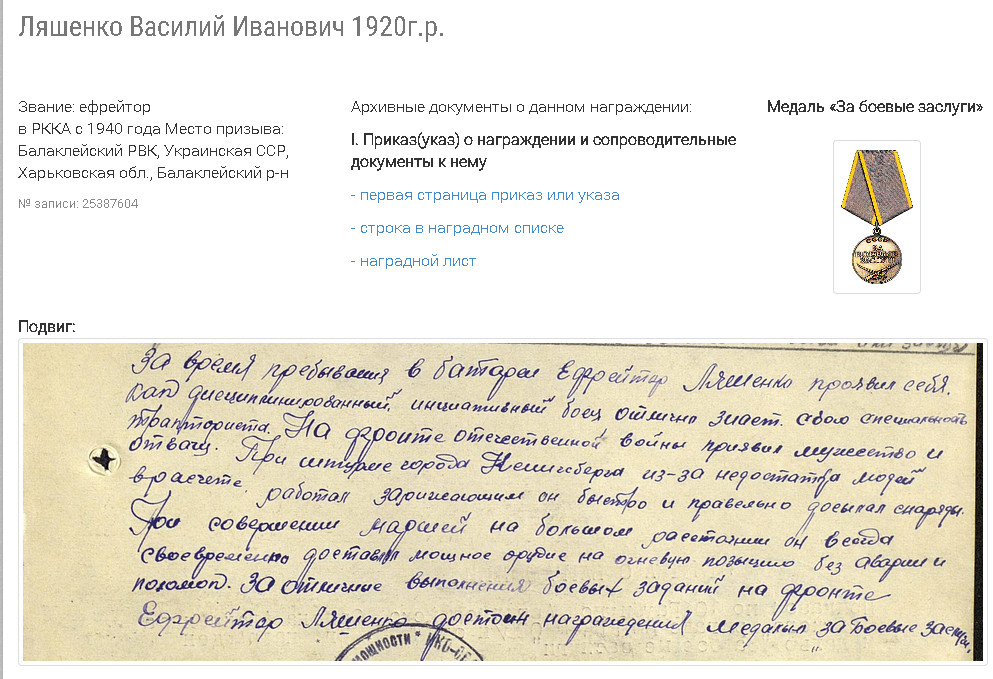 Ляшенко Василий Иванович 1920г.р.
Звание: ефрейтор
в РККА с 1940 года Место призыва:
Балаклейский РВК, Украинская ССР,
Харьковская обл., Балаклейский р-н
№ записи: 25387604
Архивные документы о данном награждении:
I. Приказ(указ) о награждении и сопроводительные
документы к нему
- первая страница приказ или указа
- строка в наградном списке
- наградной лист
Медаль «За боевые заслуги»
Подвиг:
За время пребывания в батареи Ефрейтор Ляшенко проявил себя.
как дисциплинированный, инициативный боец отлично знает свою специальность
тракториста. На фронте отечественной войны приявил мужество и
отвагу. При штурме города Кенигсберга из-за недостатка людей
в расчете, работал заряжающим он быстро и правельно досылал снаряды.
При совершении маршей на большом расстоянии он всегда
своевременно доставлял мощное орудие на огневую позицию без аварии и
поломок. За отличные выполнения боевых заданий на фронте
Ефрейтор Ляшенко достоин награждения медалью „За боевые